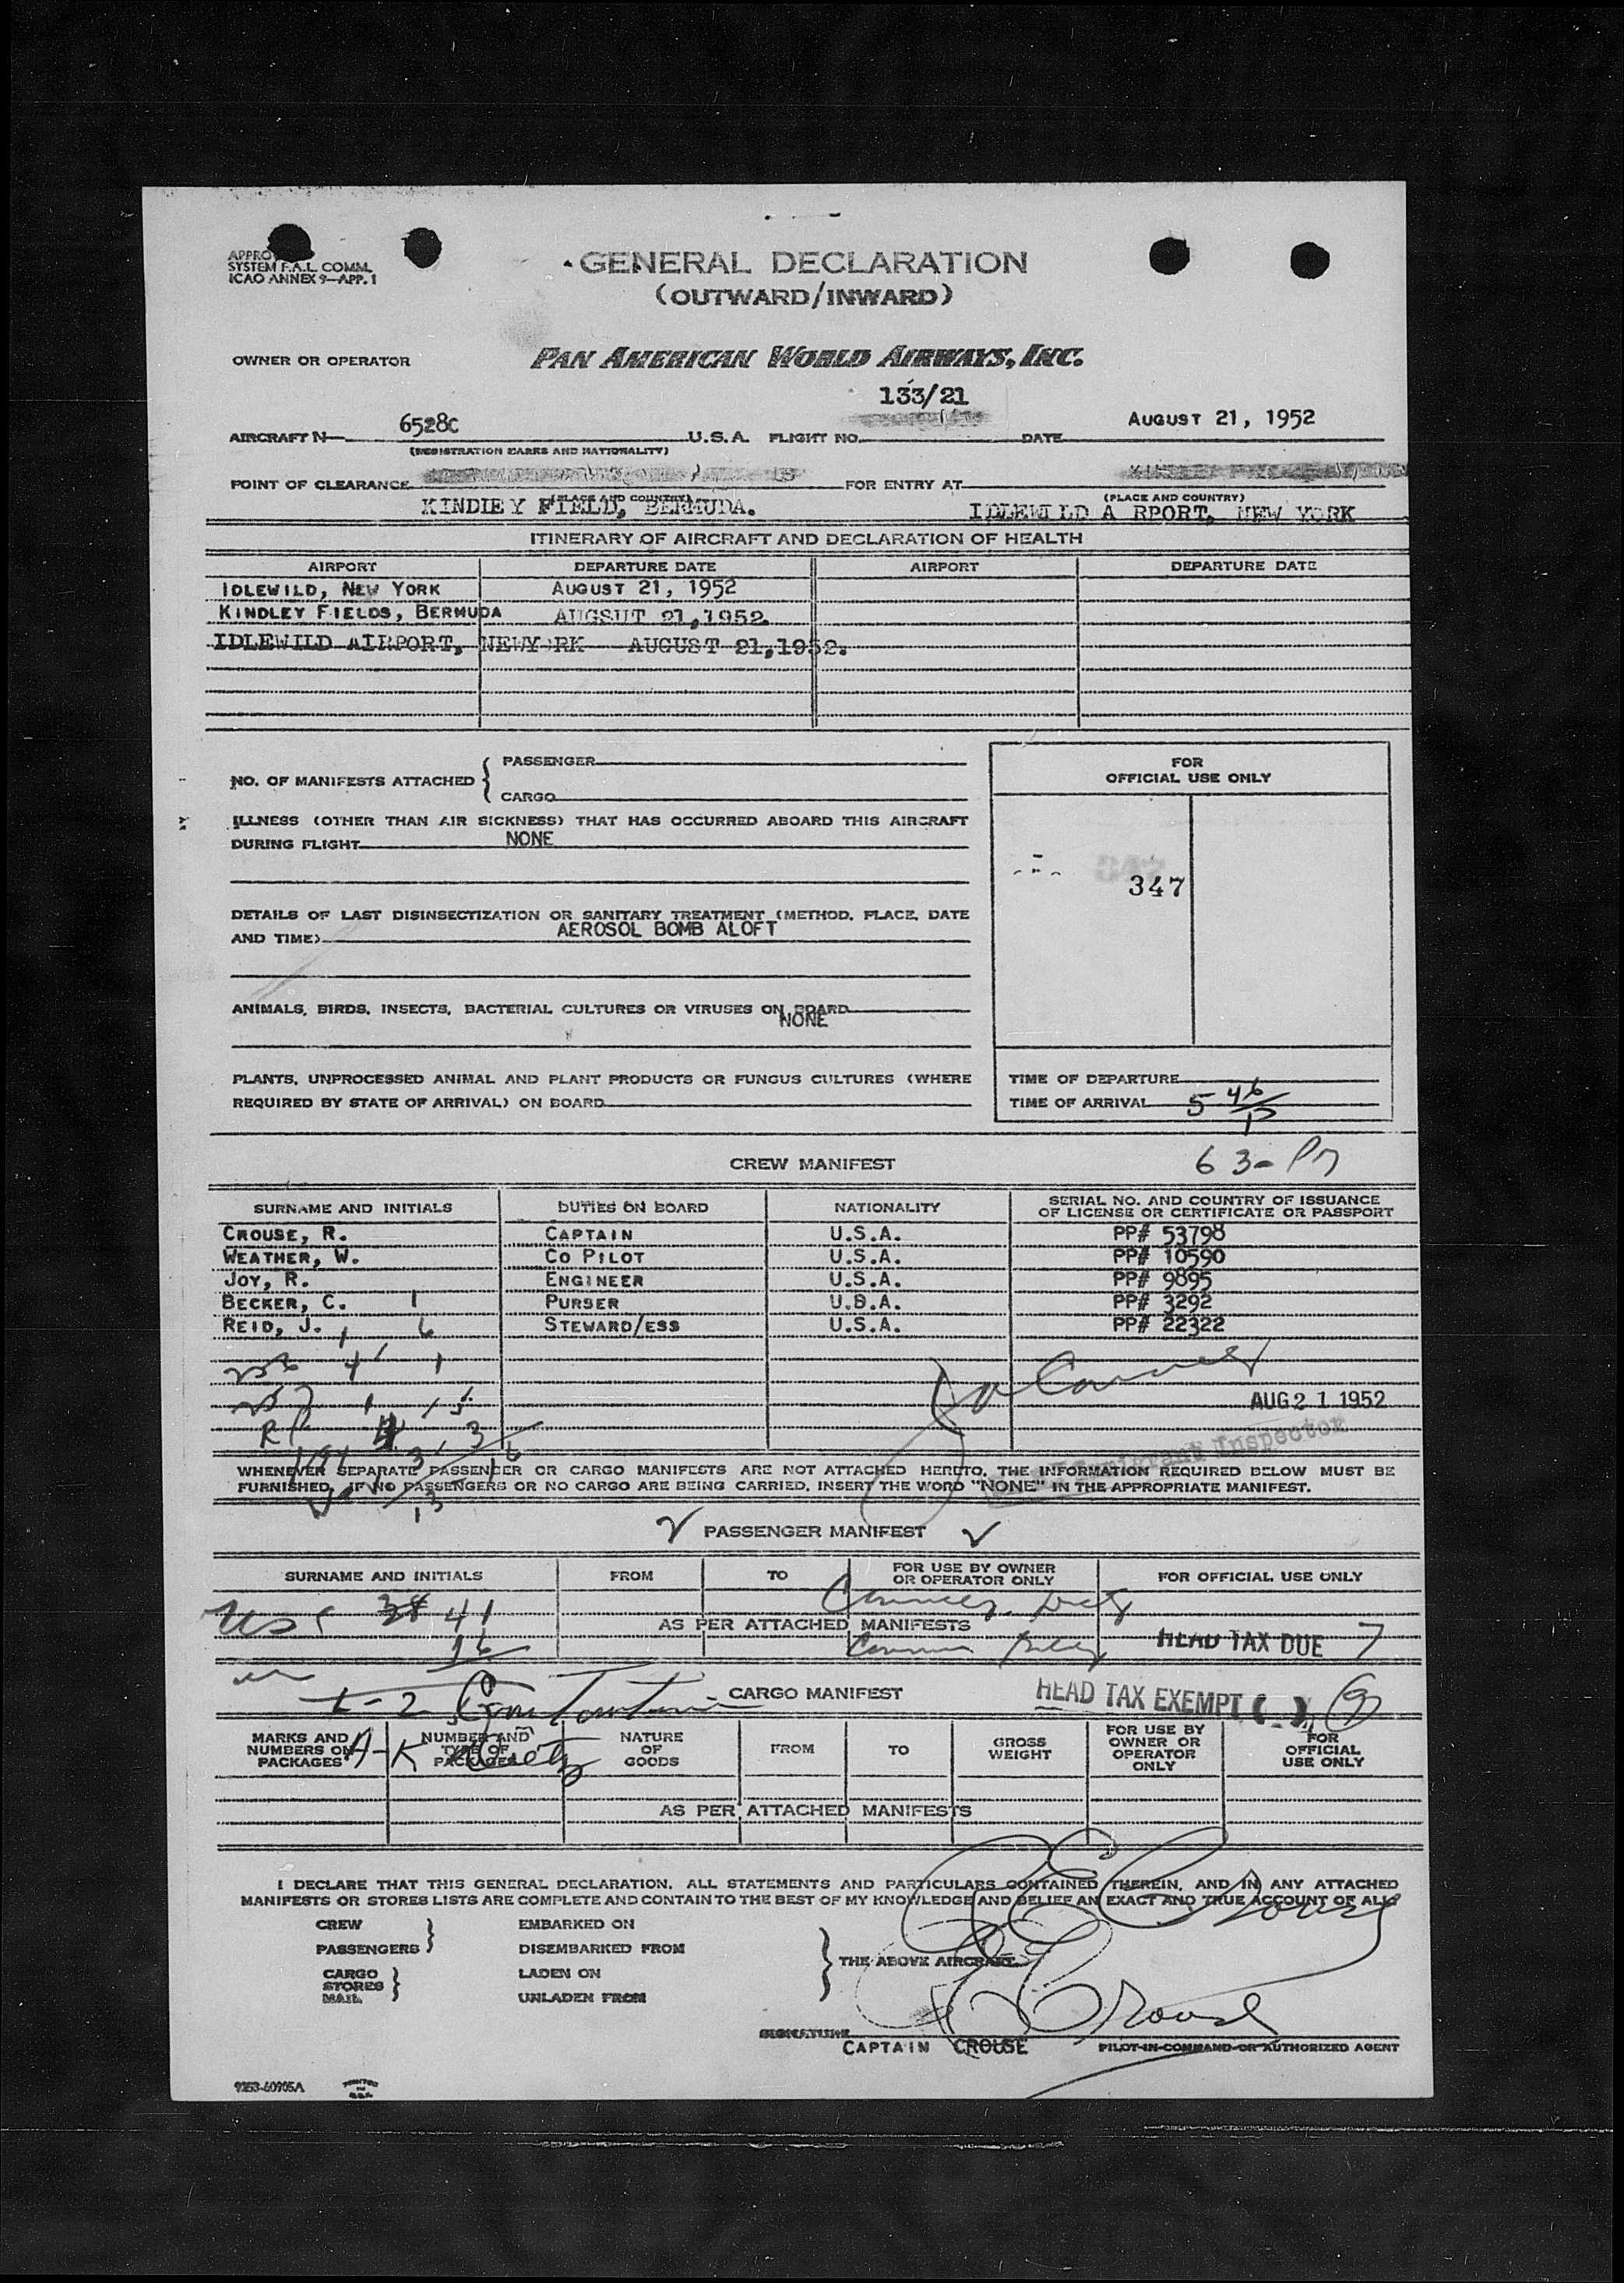 APPRO
SYSTEM F.A.L. COMM.
ICAO ANNEX 9—APP. 1
GENERAL DECLARATION
(OUTWARD/INWARD)
OWNER OR OPERATOR PAN AMERICAN WORLD AIRWAYS, INC.
133/21
AIRCRAFT N— 6528C U.S.A. FLIGHT NO. DATE AUGUST 21, 1952
(REGISTRATION MARKS AND NATIONALITY)
POINT OF CLEARANCE FOR ENTRY AT
(PLACE AND COUNTRY) (PLACE AND COUNTRY)
KINDIEY FIELD, BERMUDA. IDLEWILD A RPORT, NEW YORK
ITINERARY OF AIRCRAFT AND DECLARATION OF HEALTH
AIRPORT DEPARTURE DATE AIRPORT DEPARTURE DATE
IDLEWILD, NEW YORK AUGUST 21, 1952
KINDLEY FIELDS, BERMUDA AUGSUT 21,1952.
IDLEWILD AIRPORT, NEWY RK AUGUST 21,1952.
NO. OF MANIFESTS ATTACHED { PASSENGER
CARGO
FOR
OFFICIAL USE ONLY
ILLNESS (OTHER THAN AIR SICKNESS) THAT HAS OCCURRED ABOARD THIS AIRCRAFT
DURING FLIGHT NONE
347
DETAILS OF LAST DISINSECTIZATION OR SANITARY TREATMENT (METHOD, PLACE, DATE
AND TIME) AEROSOL BOMB ALOFT
ANIMALS, BIRDS, INSECTS, BACTERIAL CULTURES OR VIRUSES ON BOARD
NONE
PLANTS, UNPROCESSED ANIMAL AND PLANT PRODUCTS OR FUNGUS CULTURES (WHERE
REQUIRED BY STATE OF ARRIVAL) ON BOARD
TIME OF DEPARTURE
TIME OF ARRIVAL 5 46 P
CREW MANIFEST 63-
SURNAME AND INITIALS DUTIES ON BOARD NATIONALITY SERIAL NO. AND COUNTRY OF ISSUANCE
OF LICENSE OR CERTIFICATE OR PASSPORT
CROUSE, R. CAPTAIN U.S.A. PP# 53798
WEATHER, W. CO PILOT U.S.A. PP# 10590
JOY, R. ENGINEER U.S.A. PP# 9895
BECKER, C. 1 PURSER U.S.A. PP# 3292
REID, J. 1 6 STEWARD/ESS U.S.A. PP# 22322
AUG 21 1952
Immigrant Inspector
WHENEVER SEPARATE PASSENGER OR CARGO MANIFESTS ARE NOT ATTACHED HERETO, THE INFORMATION REQUIRED BELOW MUST BE
FURNISHED. IF NO PASSENGERS OR NO CARGO ARE BEING CARRIED, INSERT THE WORD "NONE" IN THE APPROPRIATE MANIFEST.
PASSENGER MANIFEST
SURNAME AND INITIALS FROM TO FOR USE BY OWNER
OR OPERATOR ONLY FOR OFFICIAL USE ONLY
USC 38 41
AS PER ATTACHED MANIFESTS
16 HEAD TAX DUE 7
CARGO MANIFEST HEAD TAX EXEMPT ( ) 9
MARKS AND
NUMBERS ON
PACKAGES NUMBER AND
TYPE OF
PACKAGES NATURE
OF
GOODS FROM TO GROSS
WEIGHT FOR USE BY
OWNER OR
OPERATOR
ONLY FOR
OFFICIAL
USE ONLY
AS PER ATTACHED MANIFESTS
I DECLARE THAT THIS GENERAL DECLARATION, ALL STATEMENTS AND PARTICULARS CONTAINED THEREIN, AND IN ANY ATTACHED
MANIFESTS OR STORES LISTS ARE COMPLETE AND CONTAIN TO THE BEST OF MY KNOWLEDGE AND BELIEF AN EXACT AND TRUE ACCOUNT OF ALL
CREW EMBARKED ON
PASSENGERS DISEMBARKED FROM
THE ABOVE AIRCRAFT.
CARGO LADEN ON
STORES
MAIL UNLADEN FROM
SIGNATURE R E Crouse
CAPTAIN CROUSE PILOT-IN-COMMAND OR AUTHORIZED AGENT
9253-60905A PRINTED
IN
U.S.A.